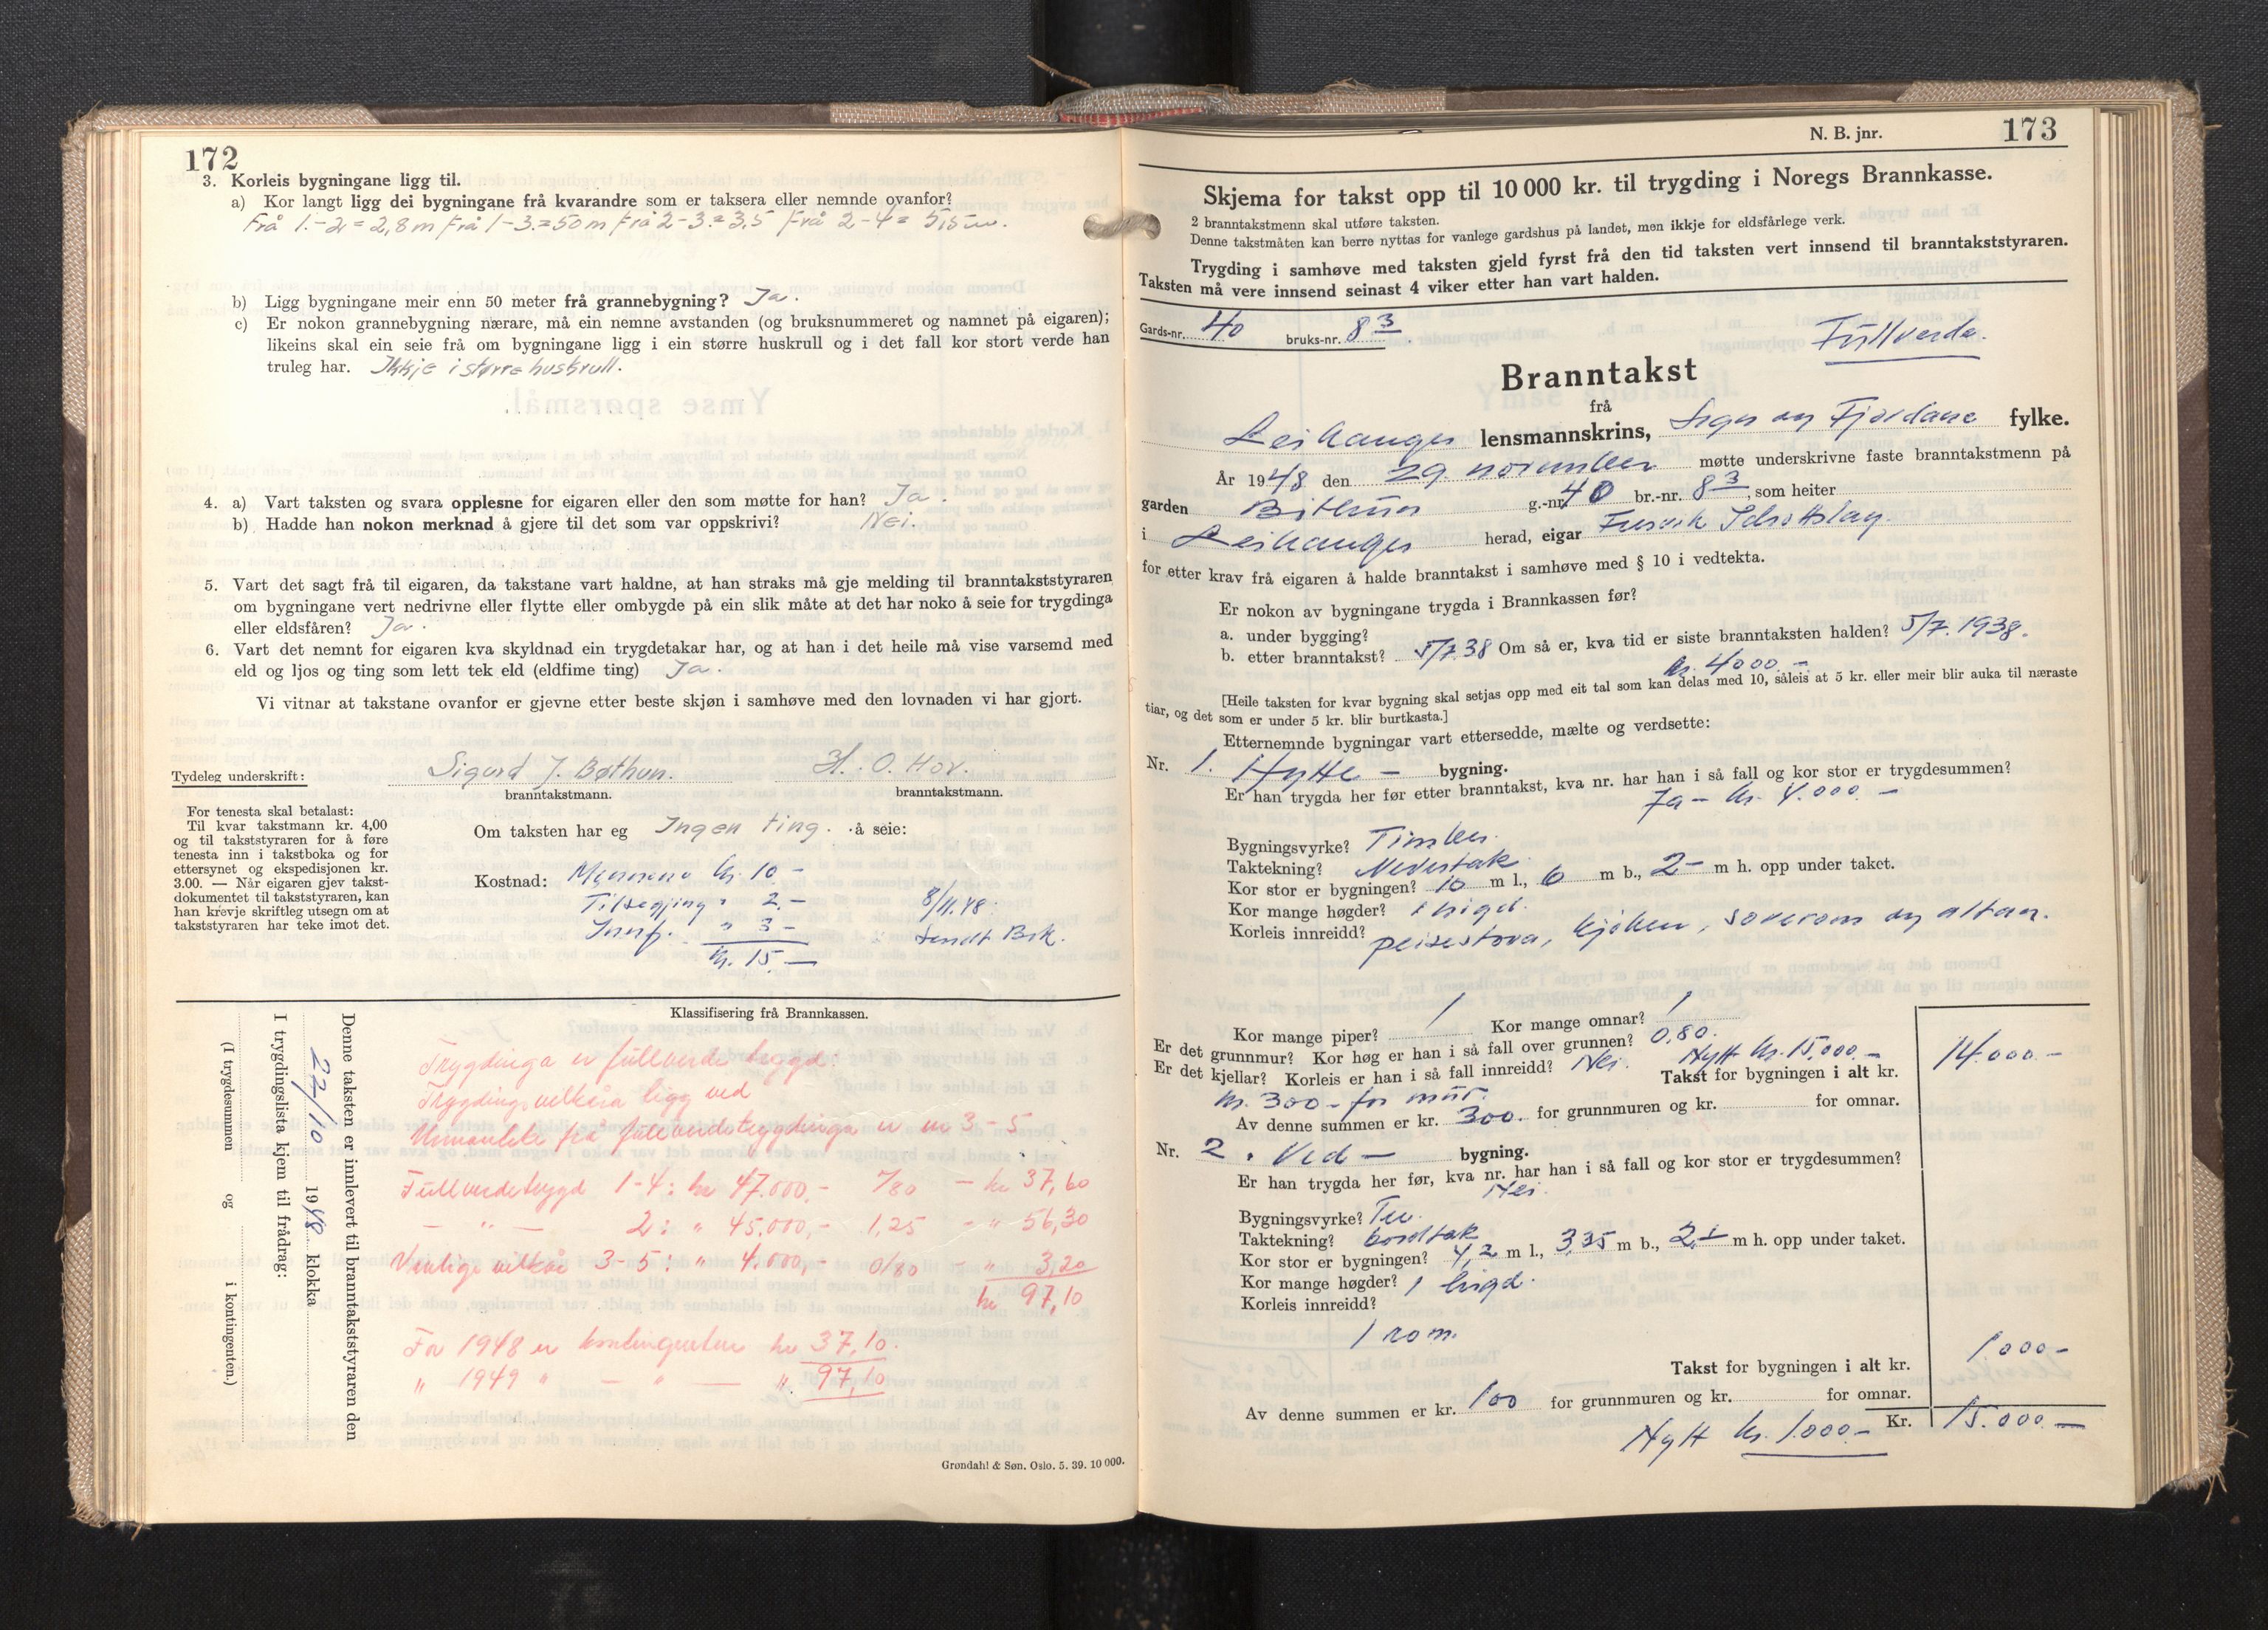 172
3. Korleis bygningane ligg til.
a) Kor langt ligg dei bygningane frå kvarandre som er taksera eller nemnde ovanfor?
Frå 1.-2. = 2,8 m Frå 1-3. = 50 m Frå 2-3. = 3,5 Frå 2-4 = 5,5 m.
b) Ligg bygningane meir enn 50 meter frå grannebygning? Ja.
c) Er nokon grannebygning nærare, må ein nemne avstanden (og bruksnummeret og namnet på eigaren);
likeins skal ein seie frå om bygningane ligg i ein større huskrull og i det fall kor stort verde han
truleg har. Ikkje i større huskrull.
4. a) Vart taksten og svara opplesne for eigaren eller den som møtte for han? Ja.
b) Hadde han nokon merknad å gjere til det som var oppskrivi? Nei.
5. Vart det sagt frå til eigaren, da takstane vart haldne, at han straks må gje melding til branntakststyraren
om bygningane vert nedrivne eller flytte eller ombygde på ein slik måte at det har noko å seie for trygdinga
eller eldsfåren? Ja.
6. Vart det nemnt for eigaren kva skyldnad ein trygdetakar har, og at han i det heile må vise varsemd med
eld og ljos og ting som lett tek eld (eldfime ting) Ja.
Vi vitnar at takstane ovanfor er gjevne etter beste skjøn i samhøve med den lovnaden vi har gjort.
Tydeleg underskrift: Sigurd J. Bøthun. H. O. Hov.
branntakstmann. branntakstmann.
For tenesta skal betalast:
Til kvar takstmann kr. 4,00
og til takststyraren for å føre
tenesta inn i takstboka og for
ettersynet og ekspedisjonen kr.
3.00. — Når eigaren gjev takst-
dokumentet til takststyraren, kan
han krevje skriftleg utsegn om at
takststyraren har teke imot det.
Om taksten har eg Ingen ting. å seie:
Kostnad: Mennene kr. 10 -
Tilsegjing " 2.- 8/11.48.
Innf. " 3 - Sendt Brk.
kr. 15. —
Klassifisering frå Brannkassen.
Trygdinga er fullverde trygd.
Trygdingsvilkåra ligg ved
Unnanteke frå fullverdetrygdinga er nr 3 - 5
Fullverdetrygd 1-4: kr 47.000,- /80 - kr 37,60
— " — 2: " 45.000,- 1,25 - " 56,30
Vanlige vilkår 3-5: " 4.000,- 0/80 - " 3,20
kr 97,10
For 1948 er kontingenten kr 37,10.
" 1949 " — " — " 97,10
Denne taksten er innlevert til branntakststyraren den
22/10 1948 klokka
I trygdingslista kjem til frådrag:
(I trygdesummen og i kontingenten.)
Grøndahl & Søn. Oslo. 5. 39. 10 000.
N. B. jnr. 173
Skjema for takst opp til 10 000 kr. til trygding i Noregs Brannkasse.
2 branntakstmenn skal utføre taksten.
Denne takstmåten kan berre nyttas for vanlege gardshus på landet, men ikkje for eldsfårlege verk.
Trygding i samhøve med taksten gjeld fyrst frå den tid taksten vert innsend til branntakststyraren.
Taksten må vere innsend seinast 4 viker etter han vart halden.
Gards-nr. 40 bruks-nr. 8 3 Fullverde.
Branntakst
frå
Leikanger lensmannskrins, Sogn og Fjordane fylke.
År 1948 den 29. november møtte underskrivne faste branntakstmenn på
garden Bøthun g.-nr. 40 br.-nr. 8 3, som heiter
i Leikanger herad, eigar Fresvik Idrottslag.
for etter krav frå eigaren å halde branntakst i samhøve med § 10 i vedtekta.
Er nokon av bygningane trygda i Brannkassen før?
a. under bygging?
b. etter branntakst? 5/7.38 Om så er, kva tid er siste branntaksten halden? 5/7. 1938.
kr. 4000. -
[Heile taksten for kvar bygning skal setjas opp med eit tal som kan delas med 10, såleis at 5 kr. eller meir blir auka til næraste
tiar, og det som er under 5 kr. blir burtkasta.]
Etternemnde bygningar vart ettersedde, mælte og verdsette:
Nr. 1. Hytte - bygning.
Er han trygda her før etter branntakst, kva nr. har han i så fall og kor stor er trygdesummen?
Ja - kr. 4.000. -
Bygningsvyrke? Timber.
Taktekning? Nevertak
Kor stor er bygningen? 10 m l., 6 m b., 2- m h. opp under taket.
Kor mange høgder? 1 høgd.
Korleis innreidd? peisestova, kjøken, soverom og altan.
Kor mange piper? 1 Kor mange omnar? 1
Er det grunnmur? Kor høg er han i så fall over grunnen? 0,80.
Er det kjellar? Korleis er han i så fall innreidd? Nei. Nytt kr. 15,000. -
Takst for bygningen i alt kr. 14.000 -
kr. 300 - for mur.
Av denne summen er kr. 300. for grunnmuren og kr. for omnar.
Nr. 2. Ved - bygning.
Er han trygda her før, kva nr. har han i så fall og kor stor er trygdesummen?
Nei.
Bygningsvyrke? Tre.
Taktekning? bordtak
Kor stor er bygningen? 4,2 m l., 3,35 m b., 2,- m h. opp under taket.
Kor mange høgder? 1 høgd.
Korleis innreidd?
1 rom.
Takst for bygningen i alt kr. 1000 -
Av denne summen er kr. 100 for grunnmuren og kr. for omnar.
Kr. 15.000. —
Nytt kr. 1.000 -